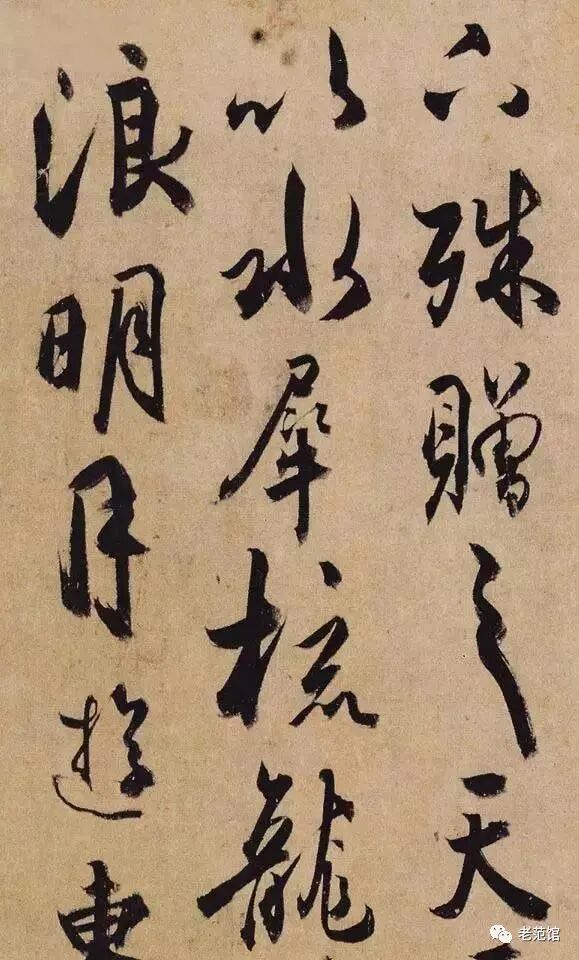 下殊贈之天
以水犀梳龍
浪明月遊東
老范馆